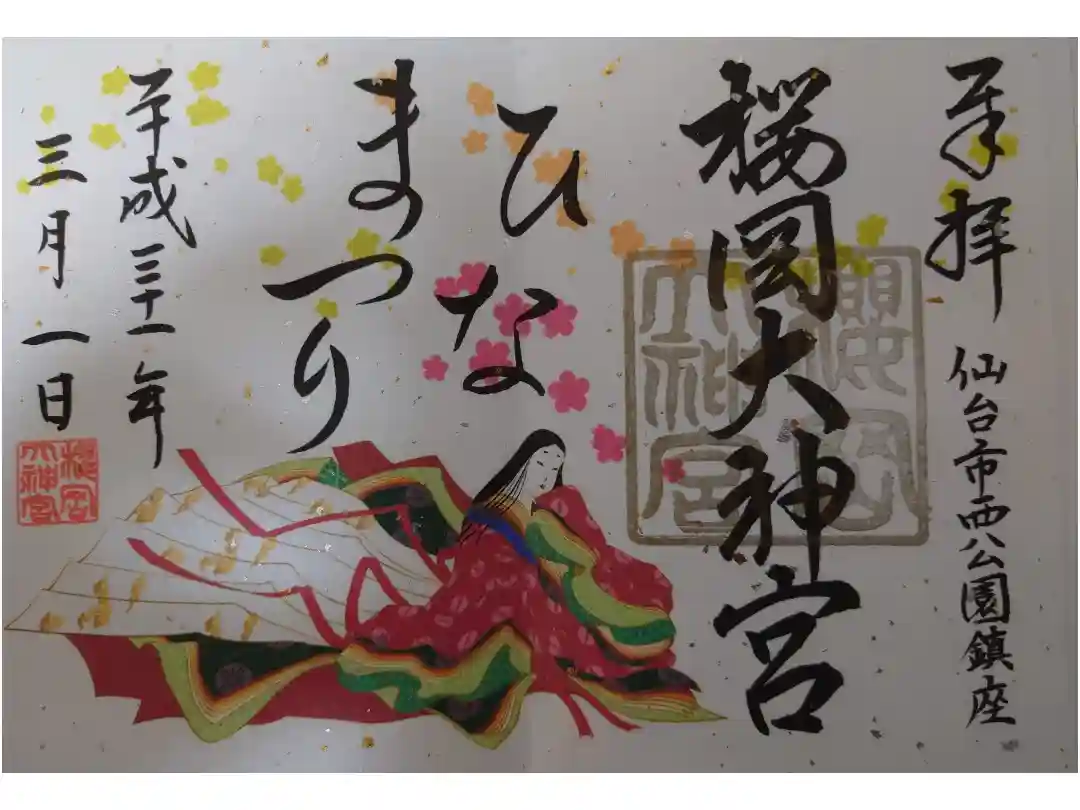 奉拝
仙台市西公園鎮座
桜岡大神宮
櫻岡
大神宮
ひな
まつり
平成三十一年
三月一日
櫻岡
大神宮